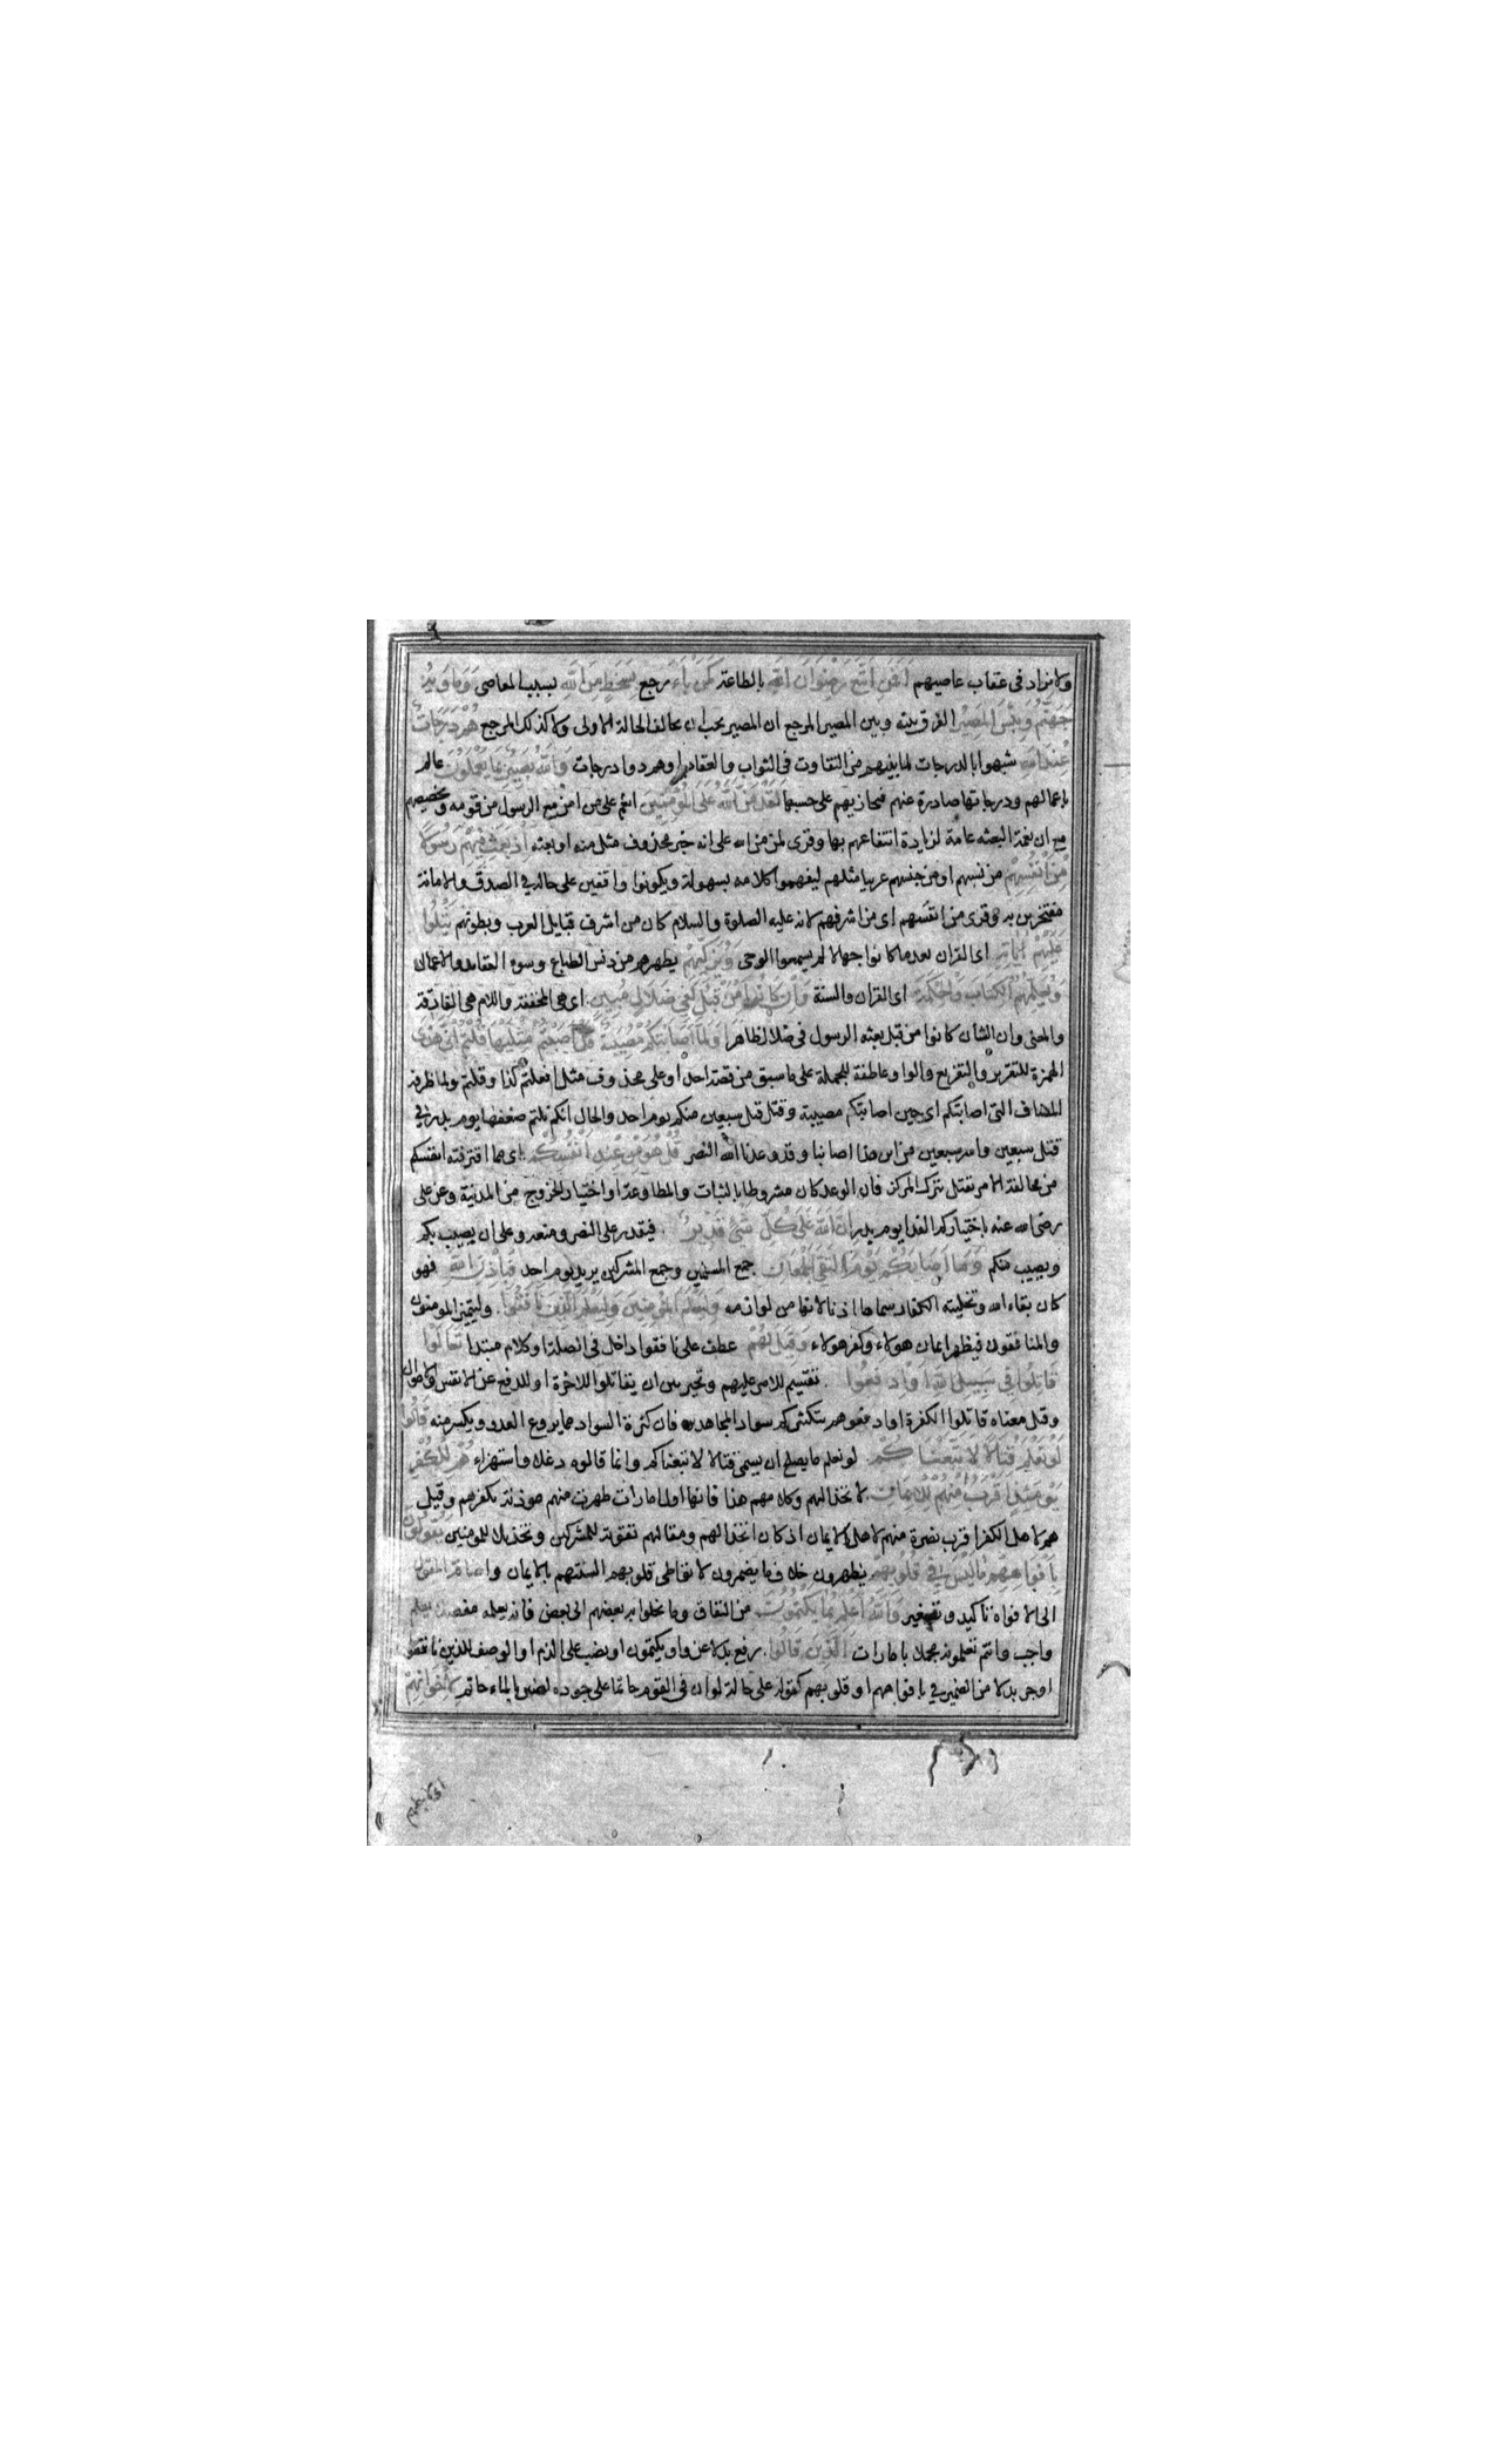 ولا يزاد في عقاب عاصيهم افمن اتبع رضوان الله بالطاعة كمن باء رجع بسخط من الله بسبب المعاصي وماويه
جهنم وبئس المصير الفرق بينه وبين المصير المرجع ان المصير يجب ان يخالف الحالة الاولى ولا كذلك المرجع هم درجات
عند الله شبهوا بالدرجات لما بينهم من التفاوت في الثواب والعقاب او هم ذوا درجات والله بصير بما يعملون عالم
باعمالهم ودرجاتها صادرة عنهم فيجازيهم على حسبها لقد من الله على المؤمنين انعم على من امن مع الرسول من قومه وتخصيصهم
مع ان نعمة البعثه عامة لزيادة انتفاعهم بها وقرى لمن من الله على انه خبر محذوف مثل منه او بعثه اذ بعث فيهم رسولا
من انفسهم من نسبهم او من جنسهم عربيا مثلهم ليفهموا كلامه بسهولة ويكونوا واقفين على حاله في الصدق والامانة
مفتخرين به وقرى من انفسهم اى من اشرفهم لانه عليه الصلوة والسلام كان من اشرف قبايل العرب وبطونهم يتلوا
عليهم اياته اى القران بعد ما كانوا جهالا لم يسمعوا الوحى ويزكيهم يطهرهم من دنس الطباع وسوء العقايد والاعمال
ويعلمهم الكتاب والحكمة اى القران والسنة وان كانوا من قبل لفى ضلال مبين اى هى المخففة واللام هى الفارقة
والمعنى وان الشان كانوا من قبل بعثه الرسول فى ضلال ظاهر اولما اصابتكم مصيبة قد اصبتم مثليها قلتم انى هذا
الهمزة للتقرير والتقريع والواو عاطفة للجملة على ما سبق من قصة احد او على محذوف مثل افعلتم كذا وقلتم ولما ظرفه
المضاف التى اصابتكم اى حين اصابتكم مصيبة وقتل قتل سبعين منكم يوم احد والحال انكم نلتم ضعفها يوم بدر فى
قتل سبعين واسر سبعين من اين هذا اصابنا وقد وعدنا الله النصر قل هو من عند انفسكم اى مما اقترفته انفسكم
من مخالفة الامر بترك المركز فان الوعد كان مشروطا بالثبات والمطاوعة او اختيار الخروج من المدينة وعن على
رضى الله عنه باختياركم الفدا يوم بدر ان الله على كل شئ قدير فيقدر على النصر ومنعه وعلى ان يصيب بكم
ويصيب منكم وما اصابكم يوم التقى الجمعان جمع المسلمين وجمع المشركين يريد يوم احد فباذن الله فهو
كان بقاء الله وتخليته الكفار سماها اذنا لانها من لوازمه وليعلم المؤمنين وليعلم الذين نافقوا وليتميز المومنون
والمنافقون فيظهر ايمان هولاء وكفر هولاء وقيل لهم عطف على نافقوا داخل فى الصلة او كلام مبتدا تعالوا
قاتلوا في سبيل الله او ادفعوا تقسيم للامر عليهم وتخيير بين ان يقاتلوا للاخرة او للدفع عن الانفس والاموال
وقيل معناه قاتلوا الكفرة او ادفعوهم بتكثيركم سواد المجاهدين فان كثرة السواد مما يروع العدو ويكسر منه قالوا
لو نعلم قتالا لاتبعناكم لو نعلم ما يصلح ان يسمى قتالا لاتبعناكم وانما قالوه دغلا واستهزاء هم للكفر
يومئذ اقرب منهم للايمان لانخذالهم وكلامهم هذا فانها اول امارات ظهرت منهم موذنة بكفرهم وقيل
هم لاهل الكفر اقرب نصرة منهم لاهل الايمان اذ كان انخذالهم ومقالهم تقوية للمشركين وتخذيلا للمومنين يقولون
بافواههم ما ليس في قلوبهم يظهرون خلاف ما يضمرون لا تواطى قلوبهم السنتهم بالايمان واضافة القول
الى الافواه تأكيد وتصغير والله اعلم بما يكتمون من النفاق وما يخلوا به بعضهم الى بعض فانه يعلمه مفصلا بعلم
واجب وانتم تعلمونه مجملا بامارات الذين قالوا رفع بدلا عن واو يكتمون او نصب على الذم او الوصف للذين نافقوا
او جر بدلا من الضمير في بافواههم او قلوبهم كقوله على حالة لو ان فى القوم حاتما على جوده لضن بالماء حاتم لاخوانهم